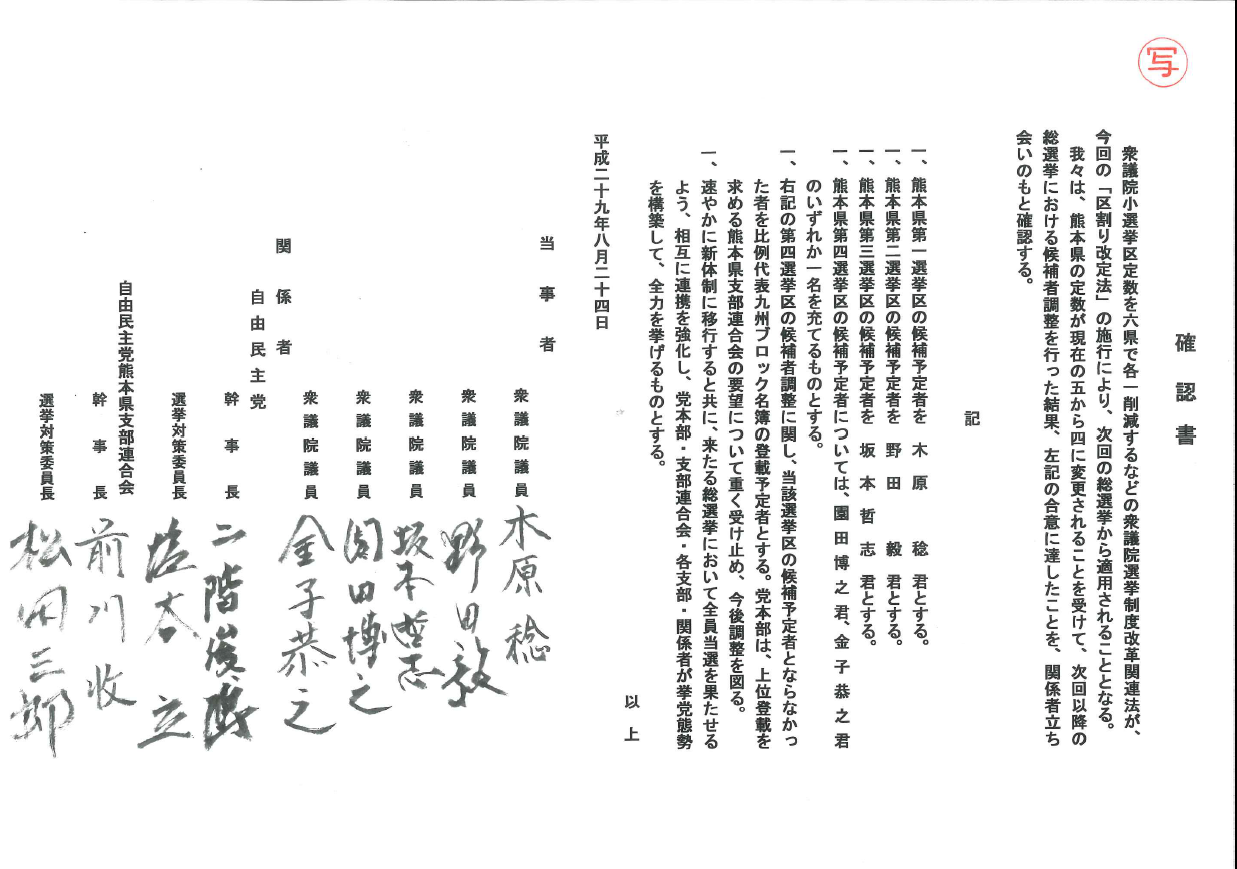 写
確認書
衆議院小選挙区定数を六県で各一削減するなどの衆議院選挙制度改革関連法が、
今回の「区割り改定法」の施行により、次回の総選挙から適用されることとなる。
我々は、熊本県の定数が現在の五から四に変更されることを受けて、次回以降の
総選挙における候補者調整を行った結果、左記の合意に達したことを、関係者立ち
会いのもと確認する。
記
一、熊本県第一選挙区の候補予定者を 木原 稔 君とする。
一、熊本県第二選挙区の候補予定者を 野田 毅 君とする。
一、熊本県第三選挙区の候補予定者を 坂本哲志 君とする。
一、熊本県第四選挙区の候補予定者については、園田博之君、金子恭之君
のいずれか一名を充てるものとする。
一、右記の第四選挙区の候補者調整に関し、当該選挙区の候補予定者とならなかっ
た者を比例代表九州ブロック名簿の登載予定者とする。党本部は、上位登載を
求める熊本県支部連合会の要望について重く受け止め、今後調整を図る。
一、速やかに新体制に移行すると共に、来たる総選挙において全員当選を果たせる
よう、相互に連携を強化し、党本部・支部連合会・各支部・関係者が挙党態勢
を構築して、全力を挙げるものとする。
以上
平成二十九年八月二十四日
当事者
衆議院議員 木原稔
衆議院議員 野田毅
衆議院議員 坂本哲志
衆議院議員 園田博之
衆議院議員 金子恭之
関係者
自由民主党
幹事長 二階俊博
選挙対策委員長 塩谷立
自由民主党熊本県支部連合会
幹事長 前川收
選挙対策委員長 松田三郎